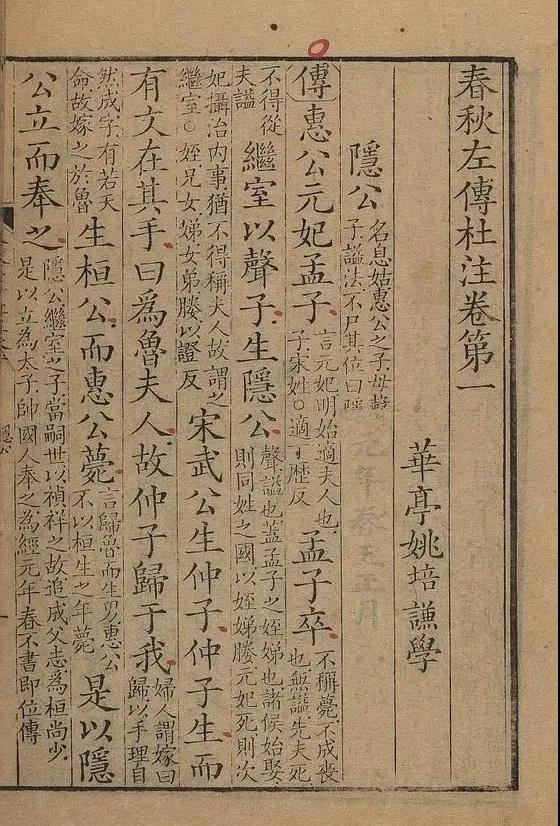 春秋左傳杜注卷第一
華亭姚培謙學
隱公 名息姑惠公之子母聲子謚法不尸其位曰隱
傳惠公元妃孟子 言元妃明始適夫人也子宋姓○適丁歷反 孟子卒 不稱薨不成喪也無謚先夫死
不得從夫謚 繼室以聲子生隱公 聲謚也蓋孟子之姪娣也諸侯始娶則同姓之國以姪娣媵元妃死則次
妃攝治內事猶不得稱夫人故謂之繼室○姪兄女娣女弟媵以證反 宋武公生仲子仲子生而
有文在其手曰爲魯夫人故仲子歸于我 婦人謂嫁曰歸以手理自
然成字有若天命故嫁之於魯 生桓公而惠公薨 言歸魯而生男惠公不以桓生之年薨 是以隱
公立而奉之 隱公繼室之子當嗣世以禎祥之故追成父志爲桓尚少是以立爲太子帥國人奉之為經元年春不書即位傳